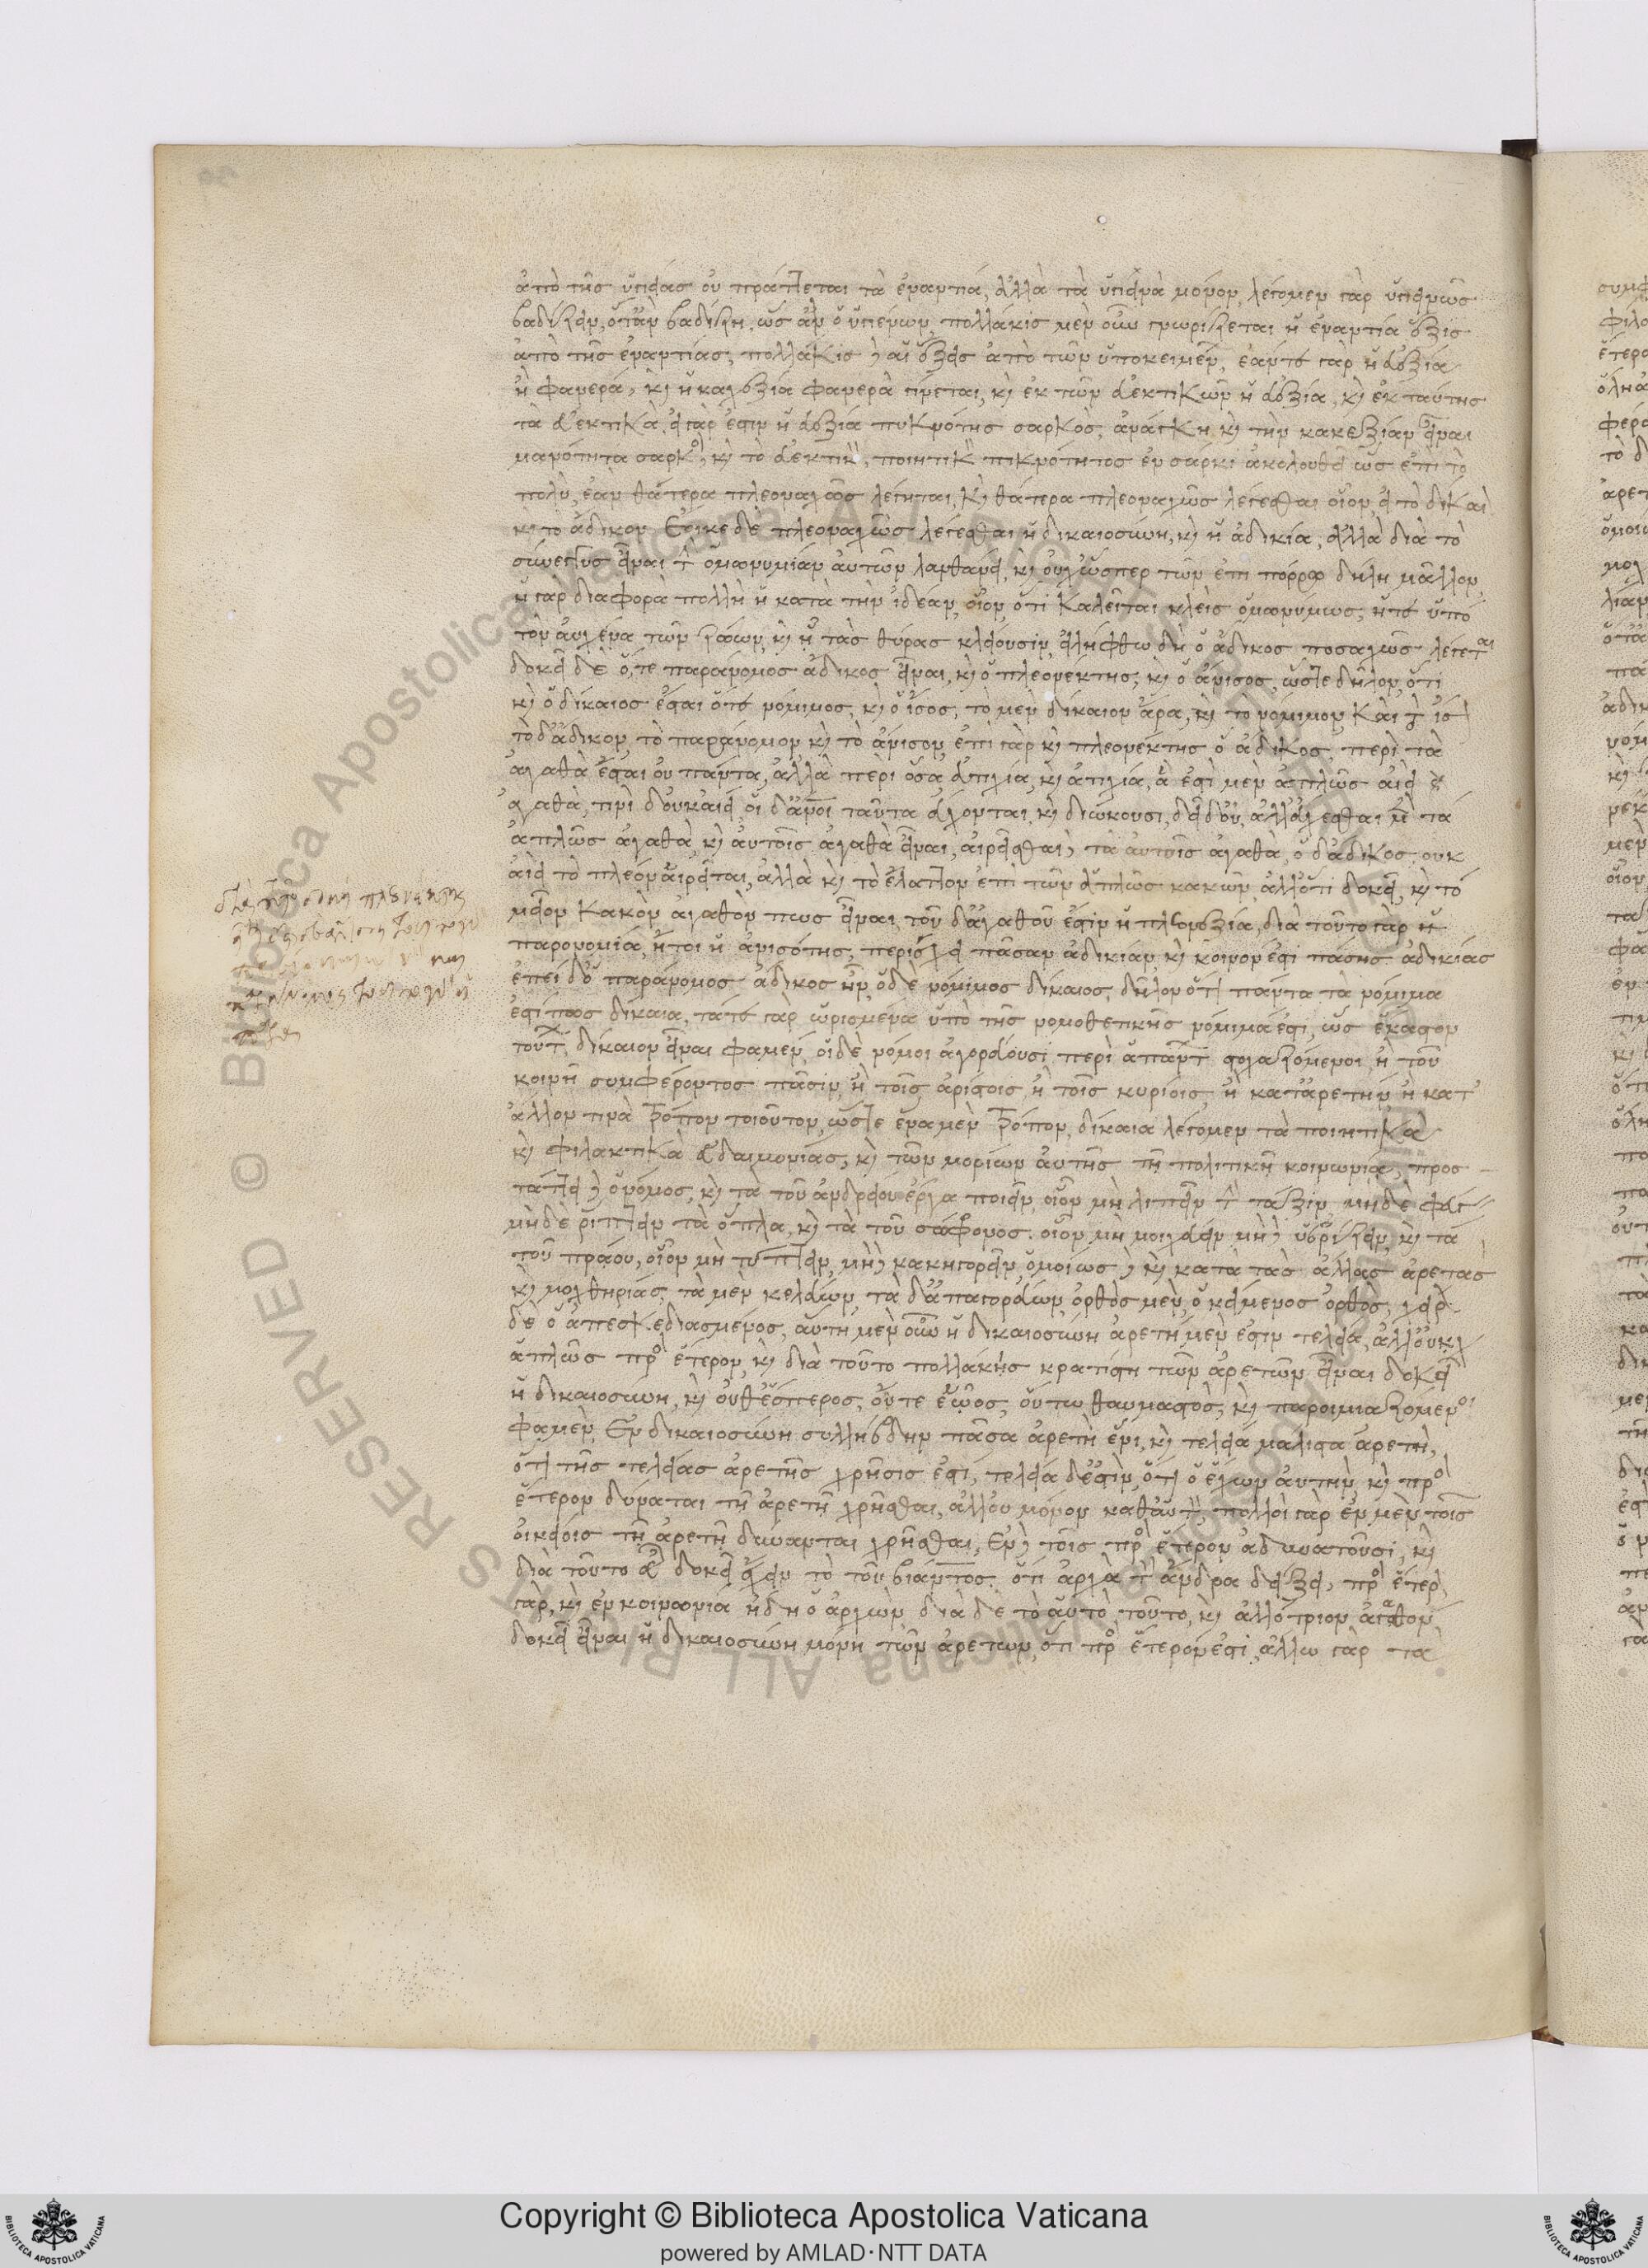 ἀπὸ τῆς ὑγιείας οὐ πράττεται τὰ ἐναντία, ἀλλὰ τὰ ὑγιεινὰ μόνον, λέγομεν γὰρ ὑγιεινῶς
βαδίζειν, ὅταν βαδίζη ὡς ἂν ὁ ὑγιαίνων, πολλάκις μὲν οὖν γνωρίζεται ἡ ἐναντία ἕξις
ἀπὸ τῆς ἐναντίας, πολλάκις δὲ αἱ ἕξεις ἀπὸ τῶν ὑποκειμένων, ἐάν τε γὰρ ἡ εὐεξία
ἦ φανερά, καὶ ἡ καχεξία φανερὰ γίνεται, καὶ ἐκ τῶν εὐεκτικῶν ἡ εὐεξία, καὶ ἐκ ταύτης
τὰ εὐεκτικά. εἰ γάρ ἐστιν ἡ εὐεξία πυκνότης σαρκὸς, ἀνάγκη καὶ τὴν καχεξίαν εἶναι
μανότητα σαρκὸς, καὶ τὸ εὐεκτικὸν, ποιητικὸν πυκνότητος ἐν σαρκί. ἀκολουθεῖ ὡς ἐπὶ τὸ
πολὺ, ἐὰν θάτερα πλεοναχῶς λέγηται, καὶ θάτερα πλεοναχῶς λέγεσθαι οἷον, εἰ τὸ δίκαιον
καὶ τὸ ἄδικον. Ἔοικε δὲ πλεοναχῶς λέγεσθαι ἡ δικαιοσύνη, καὶ ἡ ἀδικία, ἀλλὰ διὰ τὸ
σύνεγγυς εἶναι τὴν ὁμωνυμίαν αὐτῶν λανθάνει, καὶ οὐχ ὥσπερ τῶν ἐπὶ πόρρω δήλη μᾶλλον,
ἡ γὰρ διαφορὰ πολλὴ ἡ κατὰ τὴν ἰδέαν, οἷον, ὅτι καλεῖται κλεὶς ὁμωνύμως, ἥ τε ὑπὸ
τὸν αὐχένα τῶν ζώων, καὶ ἧ τὰς θύρας κλείουσιν, εἰλήφθω δὴ ὁ ἄδικος ποσαχῶς λέγεται
δοκεῖ δὲ ὅ, τε παράνομος ἄδικος εἶναι, καὶ ὁ πλεονέκτης, καὶ ὁ ἄνισος, ὥστε δῆλον, ὅτι
καὶ ὁ δίκαιος ἔσται ὅ τε νόμιμος, καὶ ὁ ἴσος, τὸ μὲν δίκαιον ἄρα, καὶ τὸ νόμιμον καὶ τὸ ἴσον
τὸ δ' ἄδικον, τὸ παράνομον καὶ τὸ ἄνισον, ἐπεὶ γὰρ καὶ πλεονέκτης ὁ ἄδικος, περὶ τὰ
ἀγαθὰ ἔσται οὐ πάντα, ἀλλὰ περὶ ὅσα εὐτυχία, καὶ ἀτυχία, ἃ ἐστὶ μὲν ἁπλῶς αἰεὶ
ἀγαθὰ, τινὶ δ' οὐκ αἰεί, οἱ δ' ἄνθρωποι ταῦτα εὔχονται, καὶ διώκουσι, δεῖ δ' οὔ, ἀλλ' εὔχεσθαι μὲν τὰ
ἁπλῶς ἀγαθὰ, καὶ αὐτοῖς ἀγαθὰ εἶναι, αἱρεῖσθαι δὲ τὰ αὐτοῖς ἀγαθά, ὁ δ' ἄδικος, οὐκ
αἰεὶ τὸ πλέον αἱρεῖται, ἀλλὰ καὶ τὸ ἔλαττον ἐπὶ τῶν ἁπλῶς κακῶν, ἀλλ' ὅτι δοκεῖ, καὶ τὸ
μεῖον κακὸν ἀγαθόν πως εἶναι, τοῦ δ' ἀγαθοῦ ἐστὶν ἡ πλεονεξία, διὰ τοῦτο γὰρ ἡ
παρανομία, ἤτοι ἡ ἀνισότης, περιέχει πᾶσαν ἀδικίαν, καὶ κοινόν ἐστι πάσης ἀδικίας
ἐπεὶ δ' ὁ παράνομος ἄδικος ἦν, ὁ δὲ νόμιμος δίκαιος, δῆλον ὅτι πάντα τὰ νόμιμα
ἐστί πως δίκαια, τά τε γὰρ ὡρισμένα ὑπὸ τῆς νομοθετικῆς νόμιμά ἐστι, ὡς ἕκαστον
τούτων δίκαιον εἶναι φαμέν, οἱ δὲ νόμοι ἀγορεύουσι περὶ ἁπάντων στοχαζόμενοι, ἢ τοῦ
κοινῆ συμφέροντος πᾶσιν, ἢ τοῖς ἀρίστοις, ἢ τοῖς κυρίοις, ἢ κατ' ἀρετὴν, ἢ κατ'
ἄλλον τινὰ τρόπον τοιοῦτον, ὥστε ἕνα μὲν τρόπον, δίκαια λέγομεν τὰ ποιητικὰ
καὶ φυλακτικὰ εὐδαιμονίας, καὶ τῶν μορίων αὐτῆς τῆ πολιτικῆ κοινωνία, προσ
τάττει δὲ ὁ νόμος, καὶ τὰ τοῦ ἀνδρείου ἔργα ποιεῖν, οἷον μὴ λιπεῖν τὴν τάξιν, μηδὲ φεύγειν
μηδὲ ῥίπτειν τὰ ὅπλα, καὶ τὰ τοῦ σώφρονος. οἷον μὴ μοιχεύειν μὴ δὲ ὑβρίζειν, καὶ τὰ
τοῦ πράου, οἷον μὴ τύπτειν, μὴ δὲ κακηγορεῖν, ὁμοίως δὲ καὶ κατὰ τὰς ἄλλας ἀρετὰς
καὶ μοχθηρίας, τὰ μὲν κελεύων, τὰ δ' ἀπαγορεύων, ὀρθὸς μὲν, ὁ κείμενος ὀρθῶς, χεῖρον
δὲ ὁ ἀπεσχεδιασμένος, αὕτη μὲν οὖν ἡ δικαιοσύνη ἀρετὴ μέν ἐστιν τελεία, ἀλλ' οὐχ
ἁπλῶς πρὸς ἕτερον, καὶ διὰ τοῦτο πολλάκις κρατίστη τῶν ἀρετῶν εἶναι δοκεῖ
ἡ δικαιοσύνη, καὶ οὔθ' ἕσπερος, οὔτε ἑῷος, οὕτω θαυμαστὸς, καὶ παροιμιαζόμενοι
φαμὲν, Ἐν δικαιοσύνη συλλήβδην πᾶσα ἀρετὴ ἔνι, καὶ τελεία μάλιστα ἀρετὴ,
ὅτι τῆς τελείας ἀρετῆς χρῆσις ἐστί, τελεία δ' ἐστὶν, ὅτι ὁ ἔχων αὐτὴν, καὶ πρὸς
ἕτερον δύναται τῆ ἀρετῆ χρῆσθαι, ἀλλ' οὐ μόνον καθ' αὑτὸν, πολλοὶ γὰρ ἐν μὲν τοῖς
οἰκείοις τῆ ἀρετῆ δύνανται χρῆσθαι, Ἐν δὲ τοῖς πρὸς ἕτερον ἀδυνατοῦσι, καὶ
διὰ τοῦτο εὖ δοκεῖ ἔχειν τὸ τοῦ βίαντος. ὅτι ἀρχὰ τὸν ἄνδρα δείξει, πρὸς ἕτερον
γὰρ, καὶ ἐν κοινωνία ἤδη ὁ ἄρχων, διὰ δὲ τὸ αὐτὸ τοῦτο, καὶ ἀλλότριον ἀγαθὸν
δοκεῖ εἶναι ἡ δικαιοσύνη μόνη τῶν ἀρετῶν, ὅτι πρὸς ἕτερόν ἐστι, ἄλλω γὰρ τὰ
Copyright © Biblioteca Apostolica Vaticana
powered by AMLAD·NTT DATA